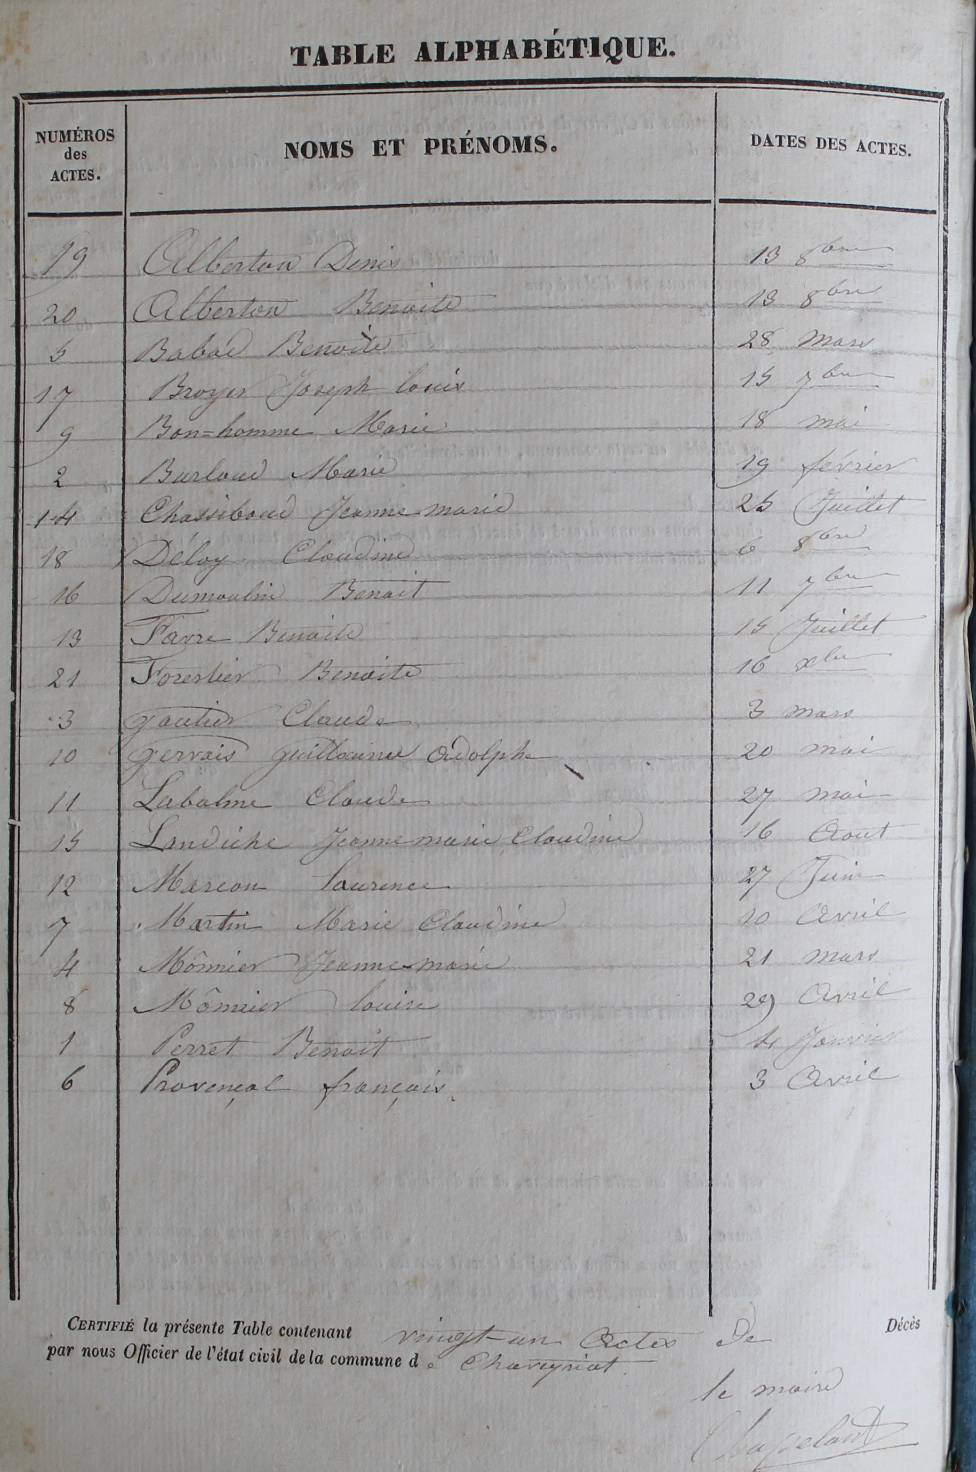 TABLE ALPHABÉTIQUE.
NUMÉROS des ACTES. NOMS ET PRÉNOMS. DATES DES ACTES.
19 Alberton Denis 13 8bre
20 Alberton Benoite 13 8bre
5 Babad Benoite 28 mars
17 Broyer Joseph louis 15 7bre
9 Bon=homme Marie 18 mai
2 Burloud Marie 19 février
14 Chassiboud Jeanne marie 25 Juillet
18 Déloy Claudine 6 8bre
16 Dumoulin Benoit 11 7bre
13 Favre Benoite 15 Juillet
21 Forestier Benoite 16 xbre
3 gautier Claude 3 mars
10 gervais guillaume adolphe 20 mai
11 Labalme Claude 27 mai
15 Jeanne marie Claudine 16 Aout
12 Marcon laurence 27 Juin
7 Martin Marie Claudine 20 Avril
4 Mônnier Jeanne-marie 21 mars
8 Mônnier louise 29 Avril
1 Perret Benoit 14 Janvier
6 Provençal français. 3 Avril
CERTIFIÉ la présente Table contenant vingt-un Actes De Décès
par nous Officier de l'état civil de la commune de Chaveyriat.
le maire
Chapeland